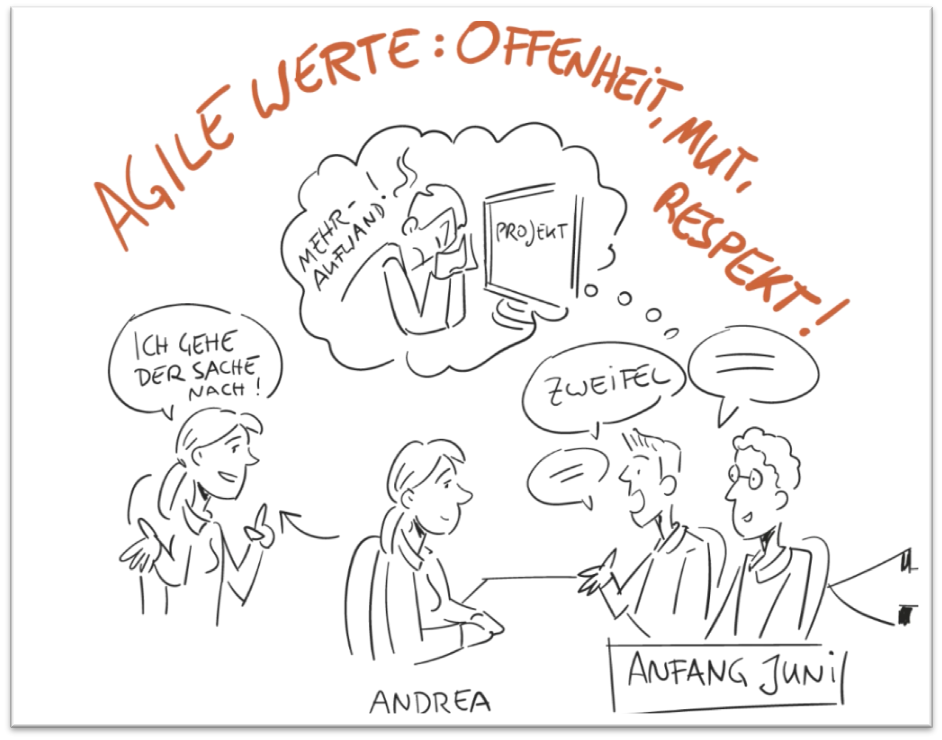 AGILE WERTE: OFFENHEIT, MUT, RESPEKT!
MEHR-
AUFWAND!
PROJEKT
ICH GEHE
DER SACHE
NACH!
ZWEIFEL
ANDREA
ANFANG JUNI